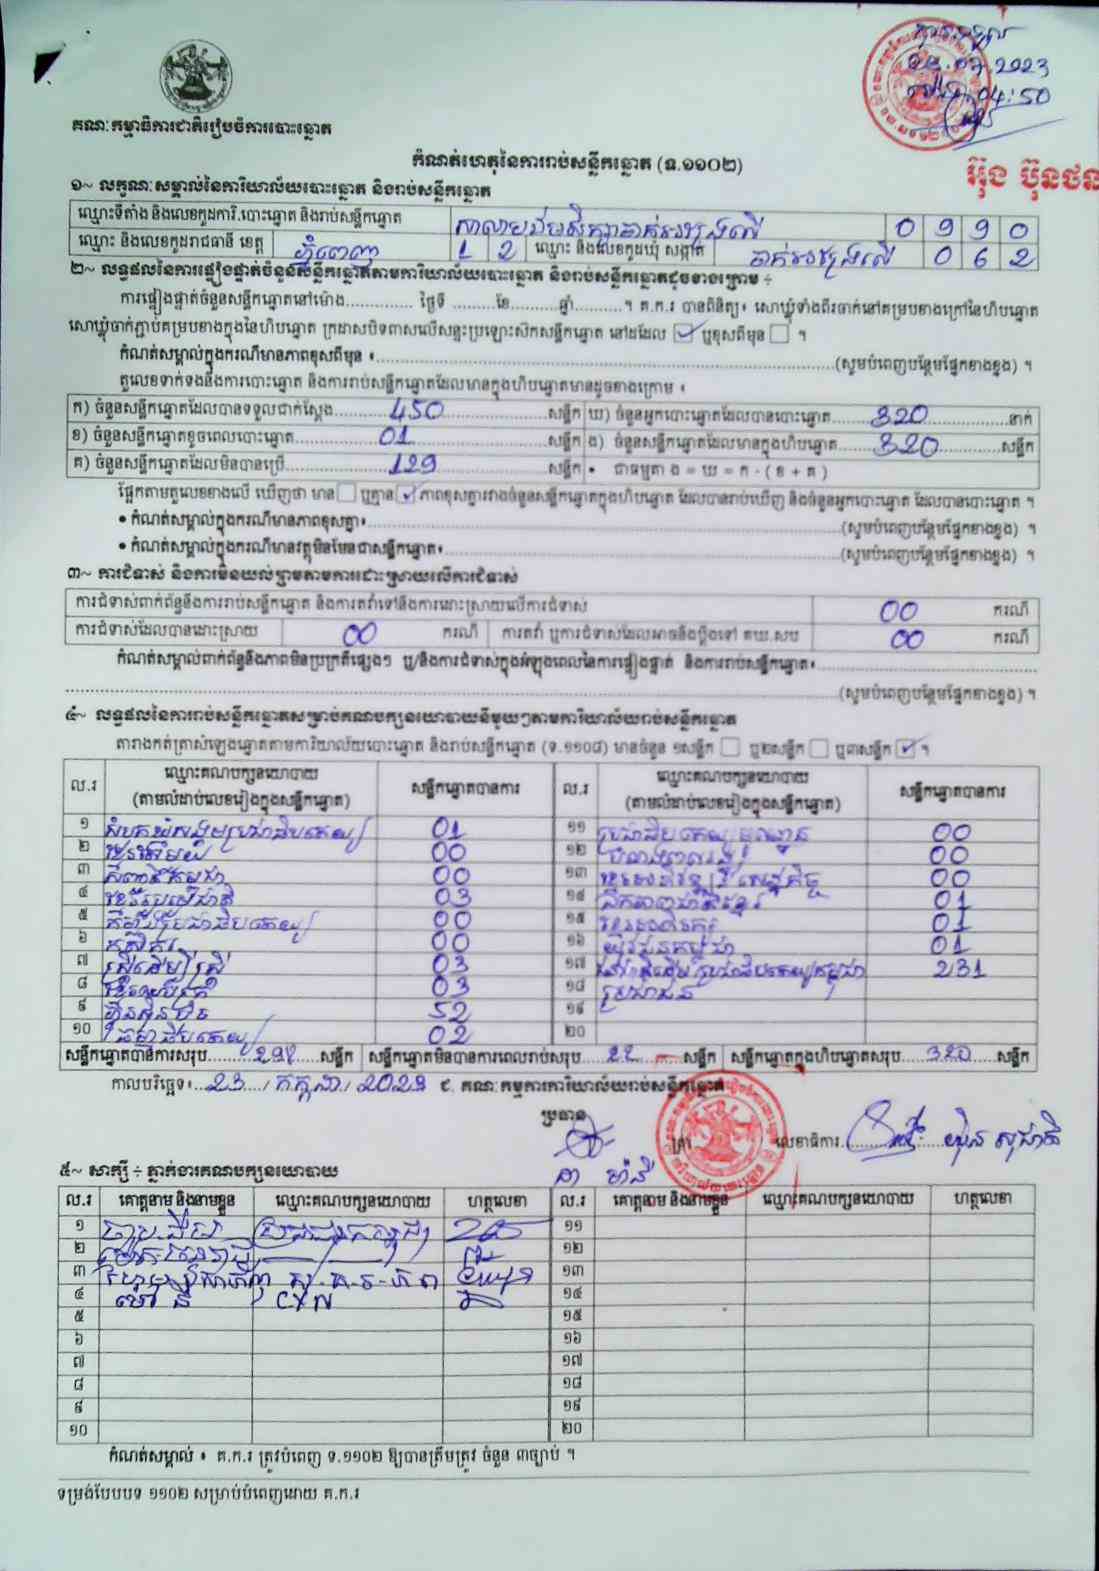 គណៈកម្មាធិការជាតិរៀបចំការបោះឆ្នោត
2023
04:50
អ៊ុង ប៊ុនថន
កំណត់ហេតុនៃការរាប់សន្លឹកឆ្នោត (ទ.១១០២)
១~ លក្ខណៈសម្គាល់នៃការិយាល័យបោះឆ្នោត និងរាប់សន្លឹកឆ្នោត
ឈ្មោះទីតាំង និងលេខកូដការិ.បោះឆ្នោត និងរាប់សន្លឹកឆ្នោត 0 9 9 0
ឈ្មោះ និងលេខកូដរាជធានី ខេត្ត ភ្នំពេញ 1 2 ឈ្មោះ និងលេខកូដឃុំ សង្កាត់ ចាក់អង្រែលើ 0 6 2
២~ លទ្ធផលនៃការផ្ទៀងផ្ទាត់ចំនួនសន្លឹកឆ្នោតតាមការិយាល័យបោះឆ្នោត និងរាប់សន្លឹកឆ្នោតដូចខាងក្រោម ÷
ការផ្ទៀងផ្ទាត់ចំនួនសន្លឹកឆ្នោតនៅម៉ោង............. ថ្ងៃទី ........ខែ............ឆ្នាំ...........។ គ.ក.រ បានពិនិត្យ៖ សោឃ្លុំទាំងពីរចាក់នៅគម្របខាងក្រៅនៃហិបឆ្នោត
សោឃ្លុំចាក់ភ្ជាប់គម្របខាងក្នុងនៃហិបឆ្នោត ក្រដាសបិទពាសលើសន្ទះប្រឡោះស៊កសន្លឹកឆ្នោត នៅដដែល ☑ ឬខុសពីមុន ☐ ។
កំណត់សម្គាល់ក្នុងករណីមានភាពខុសពីមុន ៖..............................(សូមបំពេញបន្ថែមផ្នែកខាងខ្នង) ។
តួលេខទាក់ទងនឹងការបោះឆ្នោត និងការរាប់សន្លឹកឆ្នោតដែលមានក្នុងហិបឆ្នោតមានដូចខាងក្រោម ៖
ក) ចំនួនសន្លឹកឆ្នោតដែលបានទទួលជាក់ស្តែង..........450..........សន្លឹក ឃ) ចំនួនអ្នកបោះឆ្នោតដែលបានបោះឆ្នោត......320..........នាក់
ខ) ចំនួនសន្លឹកឆ្នោតខូចពេលបោះឆ្នោត..........01..........សន្លឹក ង) ចំនួនសន្លឹកឆ្នោតដែលមានក្នុងហិបឆ្នោត......320..........សន្លឹក
គ) ចំនួនសន្លឹកឆ្នោតដែលមិនបានប្រើ..........129..........សន្លឹក • ជាធម្មតា ង = ឃ = ក - ( ខ + គ )
ផ្អែកតាមតួលេខខាងលើ ឃើញថា មាន ☐ ឬគ្មាន ☑ ភាពខុសគ្នារវាងចំនួនសន្លឹកឆ្នោតក្នុងហិបឆ្នោត ដែលបានរាប់ឃើញ និងចំនួនអ្នកបោះឆ្នោត ដែលបានបោះឆ្នោត ។
• កំណត់សម្គាល់ក្នុងករណីមានភាពខុសគ្នា៖..............................(សូមបំពេញបន្ថែមផ្នែកខាងខ្នង) ។
• កំណត់សម្គាល់ក្នុងករណីមានវត្ថុមិនមែនជាសន្លឹកឆ្នោត៖..............................(សូមបំពេញបន្ថែមផ្នែកខាងខ្នង) ។
៣~ ការជំទាស់ និងការមិនយល់ព្រមតាមការដោះស្រាយលើការជំទាស់
ការជំទាស់ពាក់ព័ន្ធនឹងការរាប់សន្លឹកឆ្នោត និងការតវ៉ាទៅនឹងការដោះស្រាយលើការជំទាស់ 00 ករណី
ការជំទាស់ដែលបានដោះស្រាយ 00 ករណី ការតវ៉ា ឬការជំទាស់ដែលអាចនឹងប្តឹងទៅ គឃ.សប 00 ករណី
កំណត់សម្គាល់ពាក់ព័ន្ធនឹងភាពមិនប្រក្រតីផ្សេងៗ ឬ/និងការជំទាស់ក្នុងអំឡុងពេលនៃការផ្ទៀងផ្ទាត់ និងការរាប់សន្លឹកឆ្នោត៖..............................
..............................(សូមបំពេញបន្ថែមផ្នែកខាងខ្នង) ។
៤~ លទ្ធផលនៃការរាប់សន្លឹកឆ្នោតសម្រាប់គណបក្សនយោបាយនីមួយៗតាមការិយាល័យរាប់សន្លឹកឆ្នោត
តារាងកត់ត្រាសំឡេងឆ្នោតតាមការិយាល័យបោះឆ្នោត និងរាប់សន្លឹកឆ្នោត (ទ.១១០៨) មានចំនួន ១សន្លឹក ☐ ឬ២សន្លឹក ☐ ឬ៣សន្លឹក ☑ ។
ល.រ ឈ្មោះគណបក្សនយោបាយ (តាមលំដាប់លេខរៀងក្នុងសន្លឹកឆ្នោត) សន្លឹកឆ្នោតបានការ ល.រ ឈ្មោះគណបក្សនយោបាយ (តាមលំដាប់លេខរៀងក្នុងសន្លឹកឆ្នោត) សន្លឹកឆ្នោតបានការ
១ សំបុកឃ្មុំសង្គមប្រជាធិបតេយ្យ 01 ១១ 00
២ 00 ១២ 00
៣ 00 ១៣ ខ្មែរអភិវឌ្ឍន៍សេដ្ឋកិច្ច 00
៤ ខ្មែររួបរួមជាតិ 03 ១៤ ឯកភាពជាតិខ្មែរ 01
៥ 00 ១៥ 01
៦ កសិករ 00 ១៦ យុវជនកម្ពុជា 01
៧ ស្ត្រីដើម្បីស្ត្រី 03 ១៧ 231
៨ 03 ១៨ ប្រជាជន
៩ ហ៊្វុនស៊ិនប៉ិច 52 ១៩
១០ ធម្មាធិបតេយ្យ 02 ២០
សន្លឹកឆ្នោតបានការសរុប........298......សន្លឹក សន្លឹកឆ្នោតមិនបានការពេលរាប់សរុប.....22......សន្លឹក សន្លឹកឆ្នោតក្នុងហិបឆ្នោតសរុប.....320.....សន្លឹក
កាលបរិច្ឆេទ៖...23.../ កក្កដា / 2023 ជ. គណៈកម្មការការិយាល័យរាប់សន្លឹកឆ្នោត
ប្រធាន
ត្រា លេខាធិការ........
៥~ សាក្សី ÷ ភ្នាក់ងារគណបក្សនយោបាយ
ល.រ គោត្តនាម និងនាមខ្លួន ឈ្មោះគណបក្សនយោបាយ ហត្ថលេខា ល.រ គោត្តនាម និងនាមខ្លួន ឈ្មោះគណបក្សនយោបាយ ហត្ថលេខា
១ ១១
២ ១២
៣ ១៣
៤ ១៤
៥ ១៥
៦ ១៦
៧ ១៧
៨ ១៨
៩ ១៩
១០ ២០
កំណត់សម្គាល់ ៖ គ.ក.រ ត្រូវបំពេញ ទ.១១០២ ឱ្យបានត្រឹមត្រូវ ចំនួន ៣ច្បាប់ ។
ទម្រង់បែបបទ ១១០២ សម្រាប់បំពេញដោយ គ.ក.រ